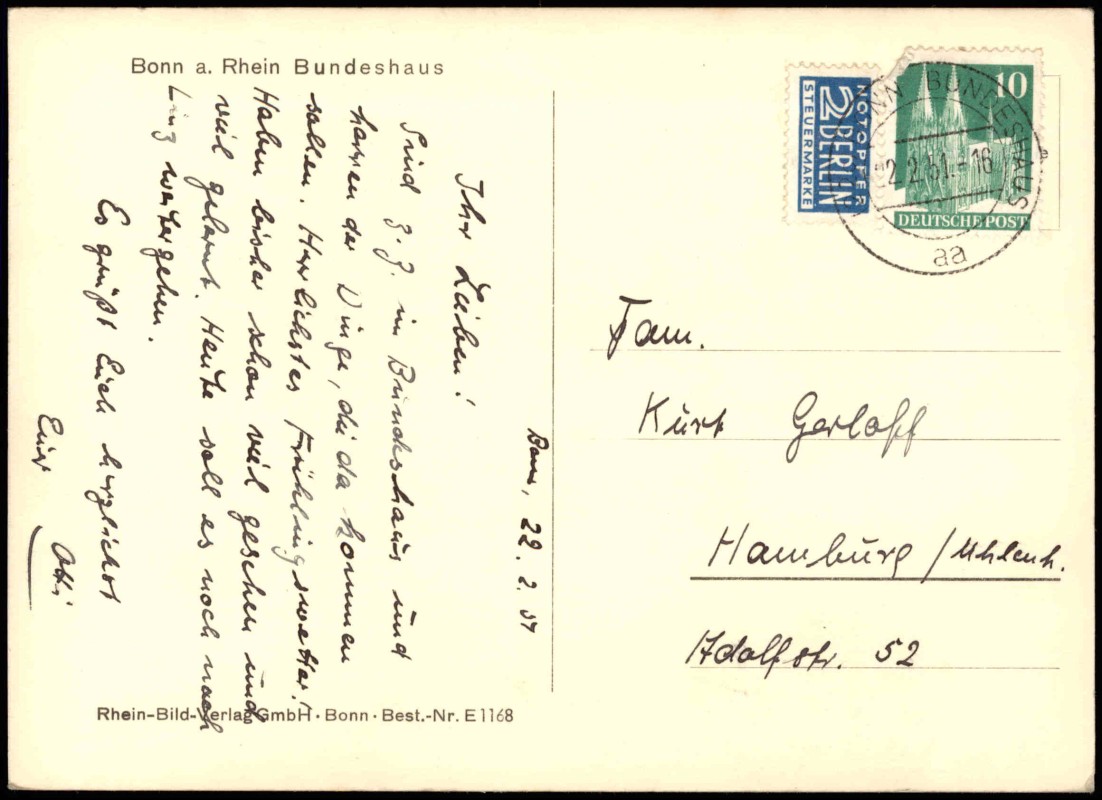 Bonn a. Rhein Bundeshaus
Bonn, 22. 2. 51
Ihr Lieben!
Sind z. Z. im Bundeshaus und
harren der Dinge, die da kommen
sollen. Herrlichstes Frühlingswetter!
Haben bisher schon viel gesehen und
viel gelernt. Heute soll es noch nach
Linz weitergehen.
Es grüßt Euch herzlichst
Euer
Otti
Rhein-Bild-Verlag GmbH · Bonn · Best.-Nr. E 1168
NOTOPFER
2 BERLIN
STEUERMARKE
10
DEUTSCHE POST
BONN BUNDESHAUS
22.2.51.-16
aa
Fam.
Kurt Gerloff
Hamburg / Uhlenh.
Adolfstr. 52